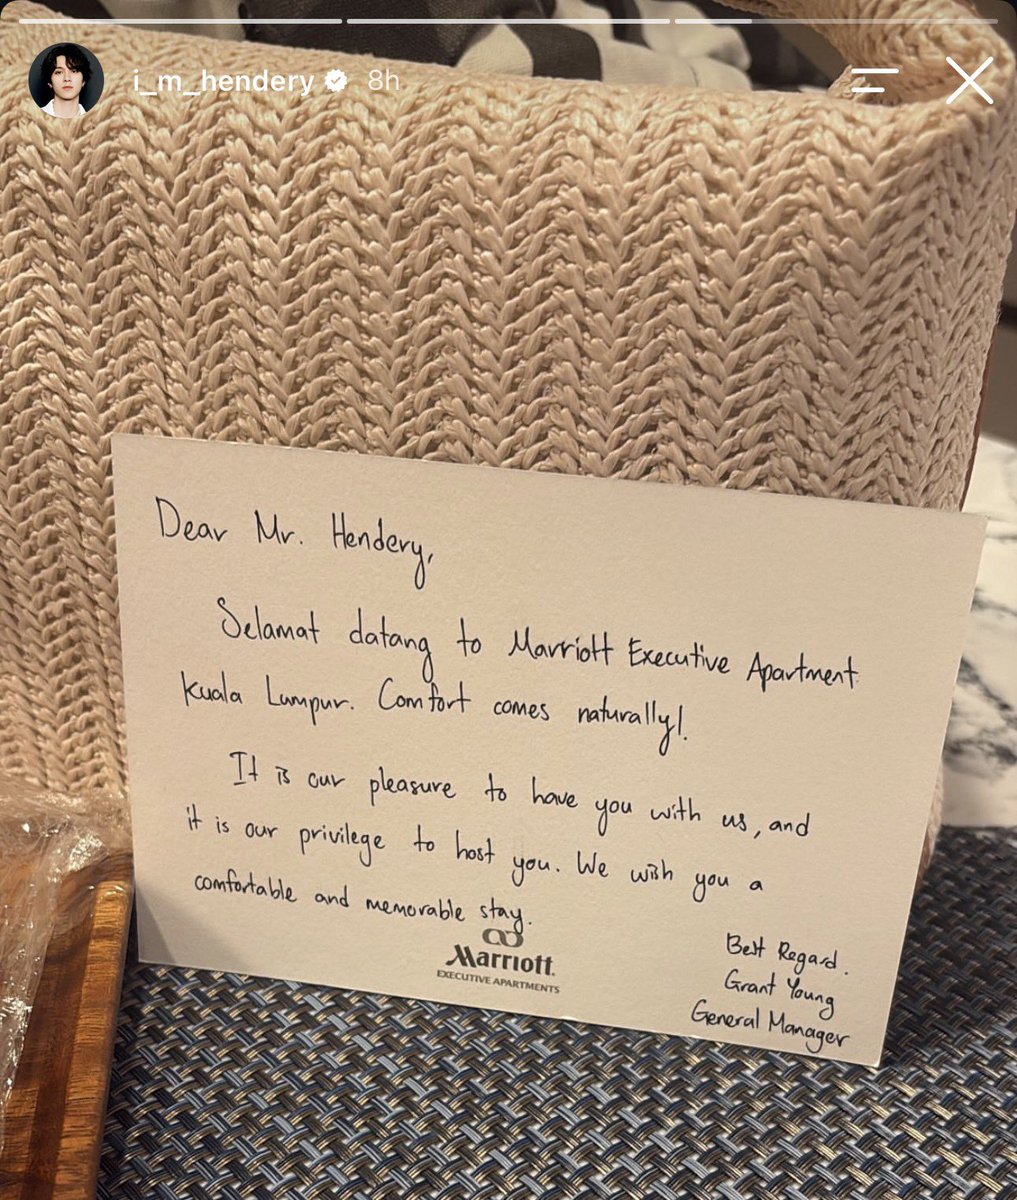 i_m_hendery 8h
Dear Mr. Hendery,
Selamat datang to Marriott Executive Apartment
Kuala Lumpur. Comfort comes naturally!
It is our pleasure to have you with us, and
it is our privilege to host you. We wish you a
comfortable and memorable stay.
Marriott.
EXECUTIVE APARTMENTS
Best Regard.
Grant Young
General Manager